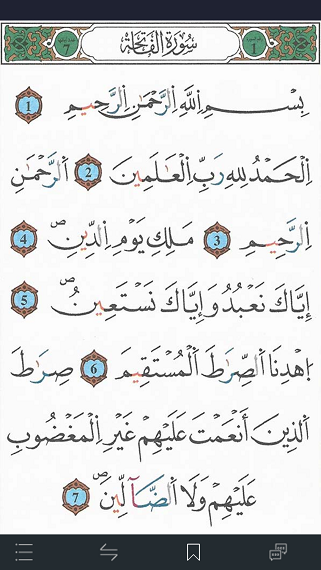 سُورَةُ الفَاتِحَةِ
7
1
بِسْمِ اِ۬للَّهِ اِ۬لرَّحْمَٰنِ اِ۬لرَّحِيمِ 1
اِ۬لْحَمْدُ لِلهِ رَبِّ اِ۬لْعَٰلَمِينَ 2 اَ۬لرَّحْمَٰنِ
اِ۬لرَّحِيمِ 3 مَلِكِ يَوْمِ اِ۬لدِّينِ ۖ 4
إِيَّاكَ نَعْبُدُ وَإِيَّاكَ نَسْتَعِينُ ۖ 5
اُ۪هْدِنَا اَ۬لصِّرَٰطَ اَ۬لْمُسْتَقِيمَ 6 صِرَٰطَ
اَ۬لذِينَ أَنْعَمْتَ عَلَيْهِمْ غَيْرِ اِ۬لْمَغْضُوبِ
عَلَيْهِمْ وَلَا اَ۬لضَّآلِّينَ ۖ 7